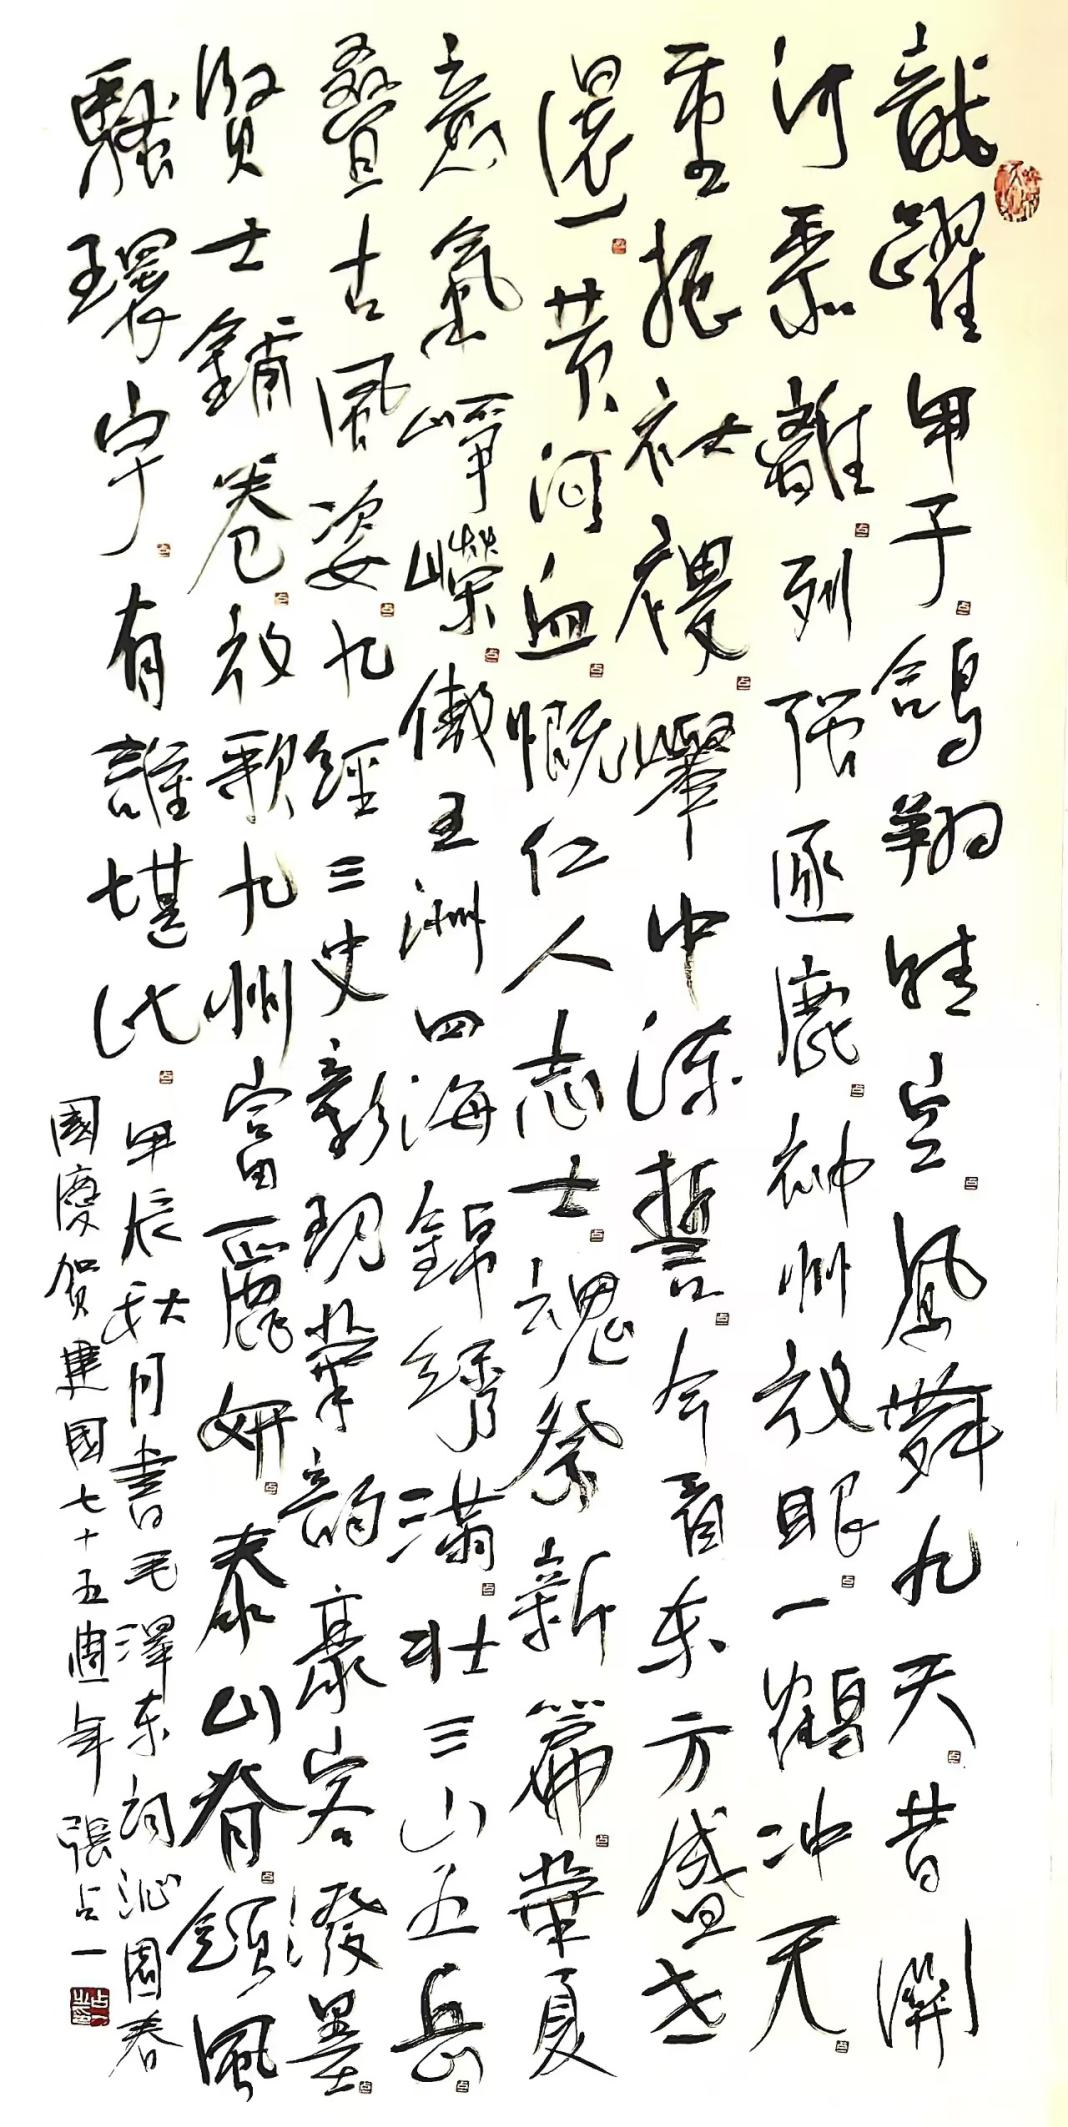 龍躍甲子鴿翔晴空鳳舞九天昔關
河黍離列强逐鹿神州放眼一鶴冲天
重振社稷舉中流誓今看东方盛世
還黄河血慨仁人志士魂祭新篇華夏
意氣崢嶸傲五洲四海錦繡满壮三山五岳
疊古風姿九經三史彰現華韵豪客潑墨
賢士鋪卷放歌九州富麗妍泰山脊領風
騷環宇有誰堪比
甲辰秋月書毛澤东詞沁園春
國慶賀建國七十五週年 張占一